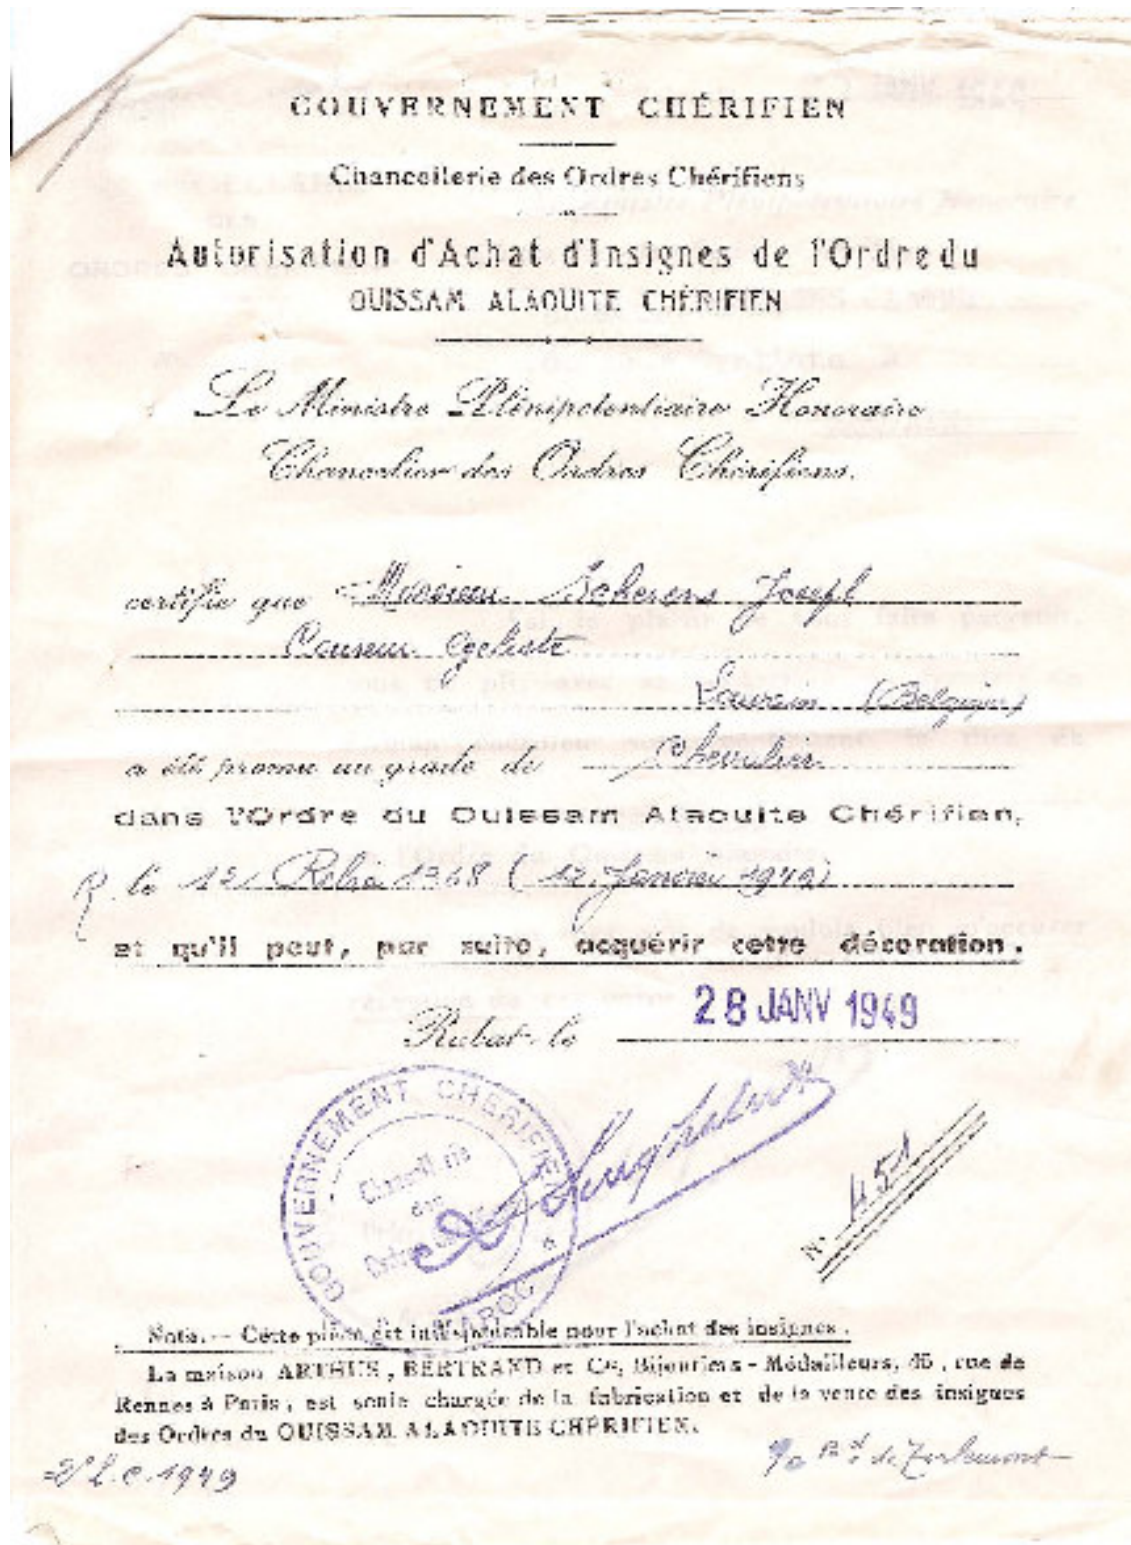 GOUVERNEMENT CHÉRIFIEN
Chancellerie des Ordres Chérifiens
Autorisation d'Achat d'Insignes de l'Ordre du
OUISSAM ALAOUITE CHÉRIFIEN
Le Ministre Plénipotentiaire Honoraire
Chancelier des Ordres Chérifiens.
certifie que Monsieur Scherens Joseph
Coureur Cycliste
(Belgique)
a été promu au grade de Chevalier
dans l'Ordre du Ouissam Alaouite Chérifien,
le 12 Rebia 1368 (12 Janvier 1949)
et qu'il peut, par suite, acquérir cette décoration.
Rabat, le 28 JANV 1949
GOUVERNEMENT CHERIFIEN
Chancellerie
des
Ordres
MAROC
N° 451
Nota. — Cette pièce est indispensable pour l'achat des insignes.
La maison ARTHUS, BERTRAND et Cie, Bijoutiers - Médailleurs, 46, rue de
Rennes à Paris, est seule chargée de la fabrication et de la vente des insignes
des Ordres du OUISSAM ALAOUITE CHÉRIFIEN.
1949
de Tirlemont